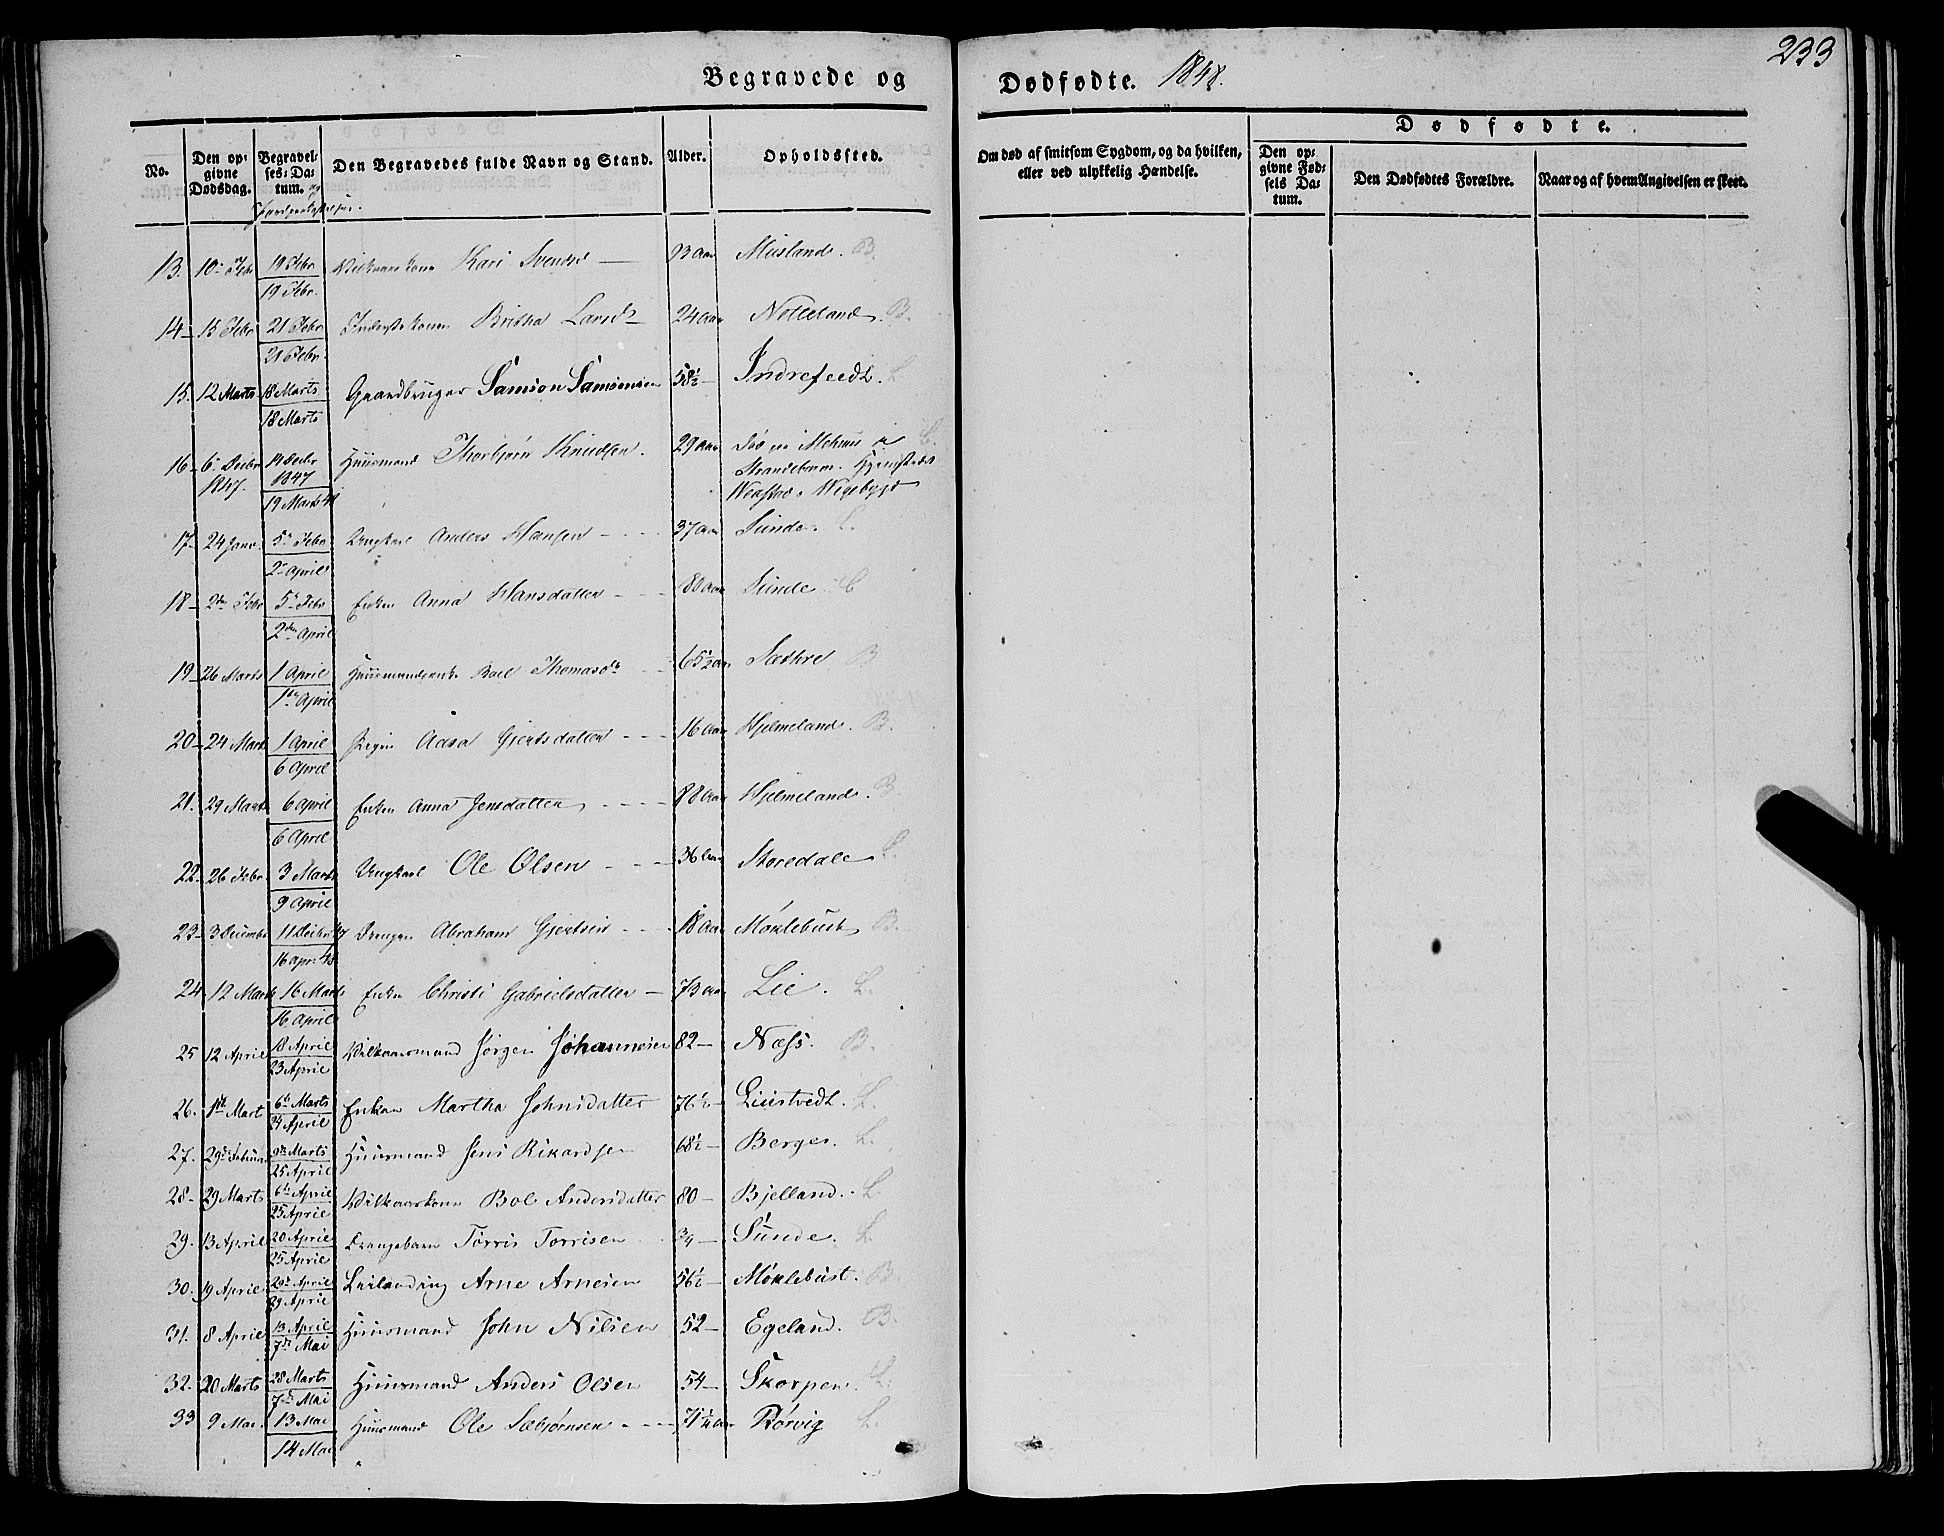 233
Begravede og Dødfødte. 1848.
No.
Den opgivne Dødsdag.
Begravelses-Datum. og Jordpaakastelsen.
Den Begravedes fulde Navn og Stand.
Alder.
Opholdssted.
Om død af smitsom Sygdom, og da hvilken, eller ved ulykkelig Hændelse.
Dødfødte.
Den opgivne Fødsels Datum.
Den Dødfødtes Forældre.
Naar og af hvem Angivelsen er skeet.
13. 10 Febr 19 Febr Vilkaarskone Kari Svendsd — Aar Musland. B.
19 Febr.
14 15 Febr 21 Febr Inderstekonen Britha Larsd 24 Aar Netteland. B.
21 Febr.
15. 12 Marts 18 Marts Gaardbruger Samson Samsonsen 58½ — Indrefeedt. L
18 Marts
16 6 Decbr 1847. 14 Decbr 1847 Huusmand Thorbjørn Knudsen. 29 Aar Død i Strandebarm. Hjemsted
19 Marts 48
17 24 Janr. 5 Febr Ungkarl Anders Hansen 37 Aar Sunde. L.
2 April
18 2den Febr 5 Febr Enken Anna Hansdatter 80 Aar Sunde L
2den April
19 26 Marts 1 April Thomasdr 65½ Aar Sæthre B
1ste April
20 24 Marts 1 April Pigen Aasa Gjertsdatter 16 Aar Hjelmeland. B.
6 April
21. 29 Marts 6 April Enken Anna Jensdatter 88 Aar Hjelmeland. B.
6 April
22. 26 Febr. 3 Marts Ungkarl Ole Olsen 36 Aar Storedale L.
9 April
23 3 Decembr 11 Decbr 47 Drengen Abraham Gjertsen 18 Aar Möklebust B.
16 apr. 48
24 12 Marts 16 Marts Enken Christi Gabrielsdatter — 73 Aar Lie. L.
16 April
25 12 April 18 April Vilkaarsmand Jørgen Johannesen 82 — Næss. B.
23 April
26. 1ste Mart 6te Marts Enken Martha Johnsdatter 76½ — L.
24 April
27. 29 Februar 9de Marts Huusmand Jens Rikardsen 68½ — Berge. L.
25 April
28. 29 Marts 6te April Vilkaarskone Bol Andersdatter 80 — Bjelland. L
25 April
29. 13 April 20 April Drengebarn Torris Torrisen ¾ — Sunde. L
25 April
30. 19 April 29 April Leilænding Arne Arnesen 56½ — Möklebust. B
29 April
31. 8 April 13 April Huusmand John Nilsen 52 — Egeland. B.
7de Mai
32. 20 Marts 28 Marts Huusmand Anders Olsen 54 — Skorpen. L.
7de Mai
33 9 Mai. 13 Mai Huusmand Ole Sæbjørnsen 71¼ Aar Rörvig L.
14 Mai